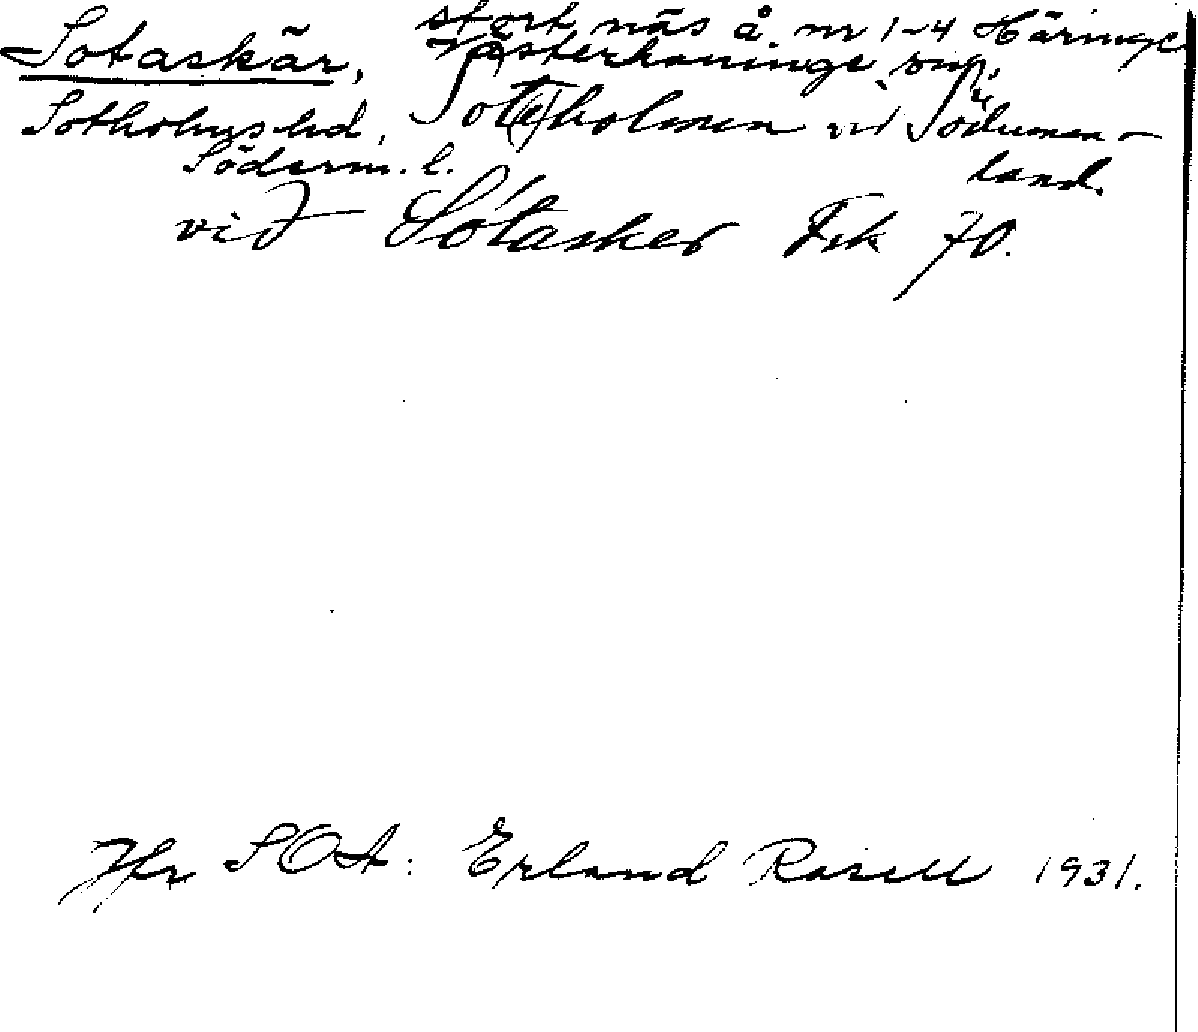 Sotaskär, stort näs å nr 1-4 Häringe
Västerhaninge snp.
Sotholms hd, Sot(a)holmen vid Söderman-
Söderm. l. land.
við Sótasker Fsk 70.
Jfr SOA: Erland Rosell 1931.